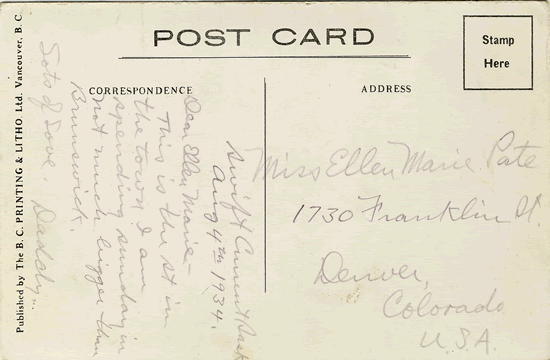 POST CARD
Stamp
Here
CORRESPONDENCE
ADDRESS
Published by The B. C. PRINTING & LITHO. Ltd. Vancouver, B. C.
Swift Current Sask
Aug 4th 1934.
Dear Ellen Marie–
This is the st in
the town I am
spending sunday in
not much bigger than
Brunswick.
Lots of Love. Daddy..
Miss Ellen Marie Pate
1730 Franklin St.
Denver,
Colorado
U.S.A.